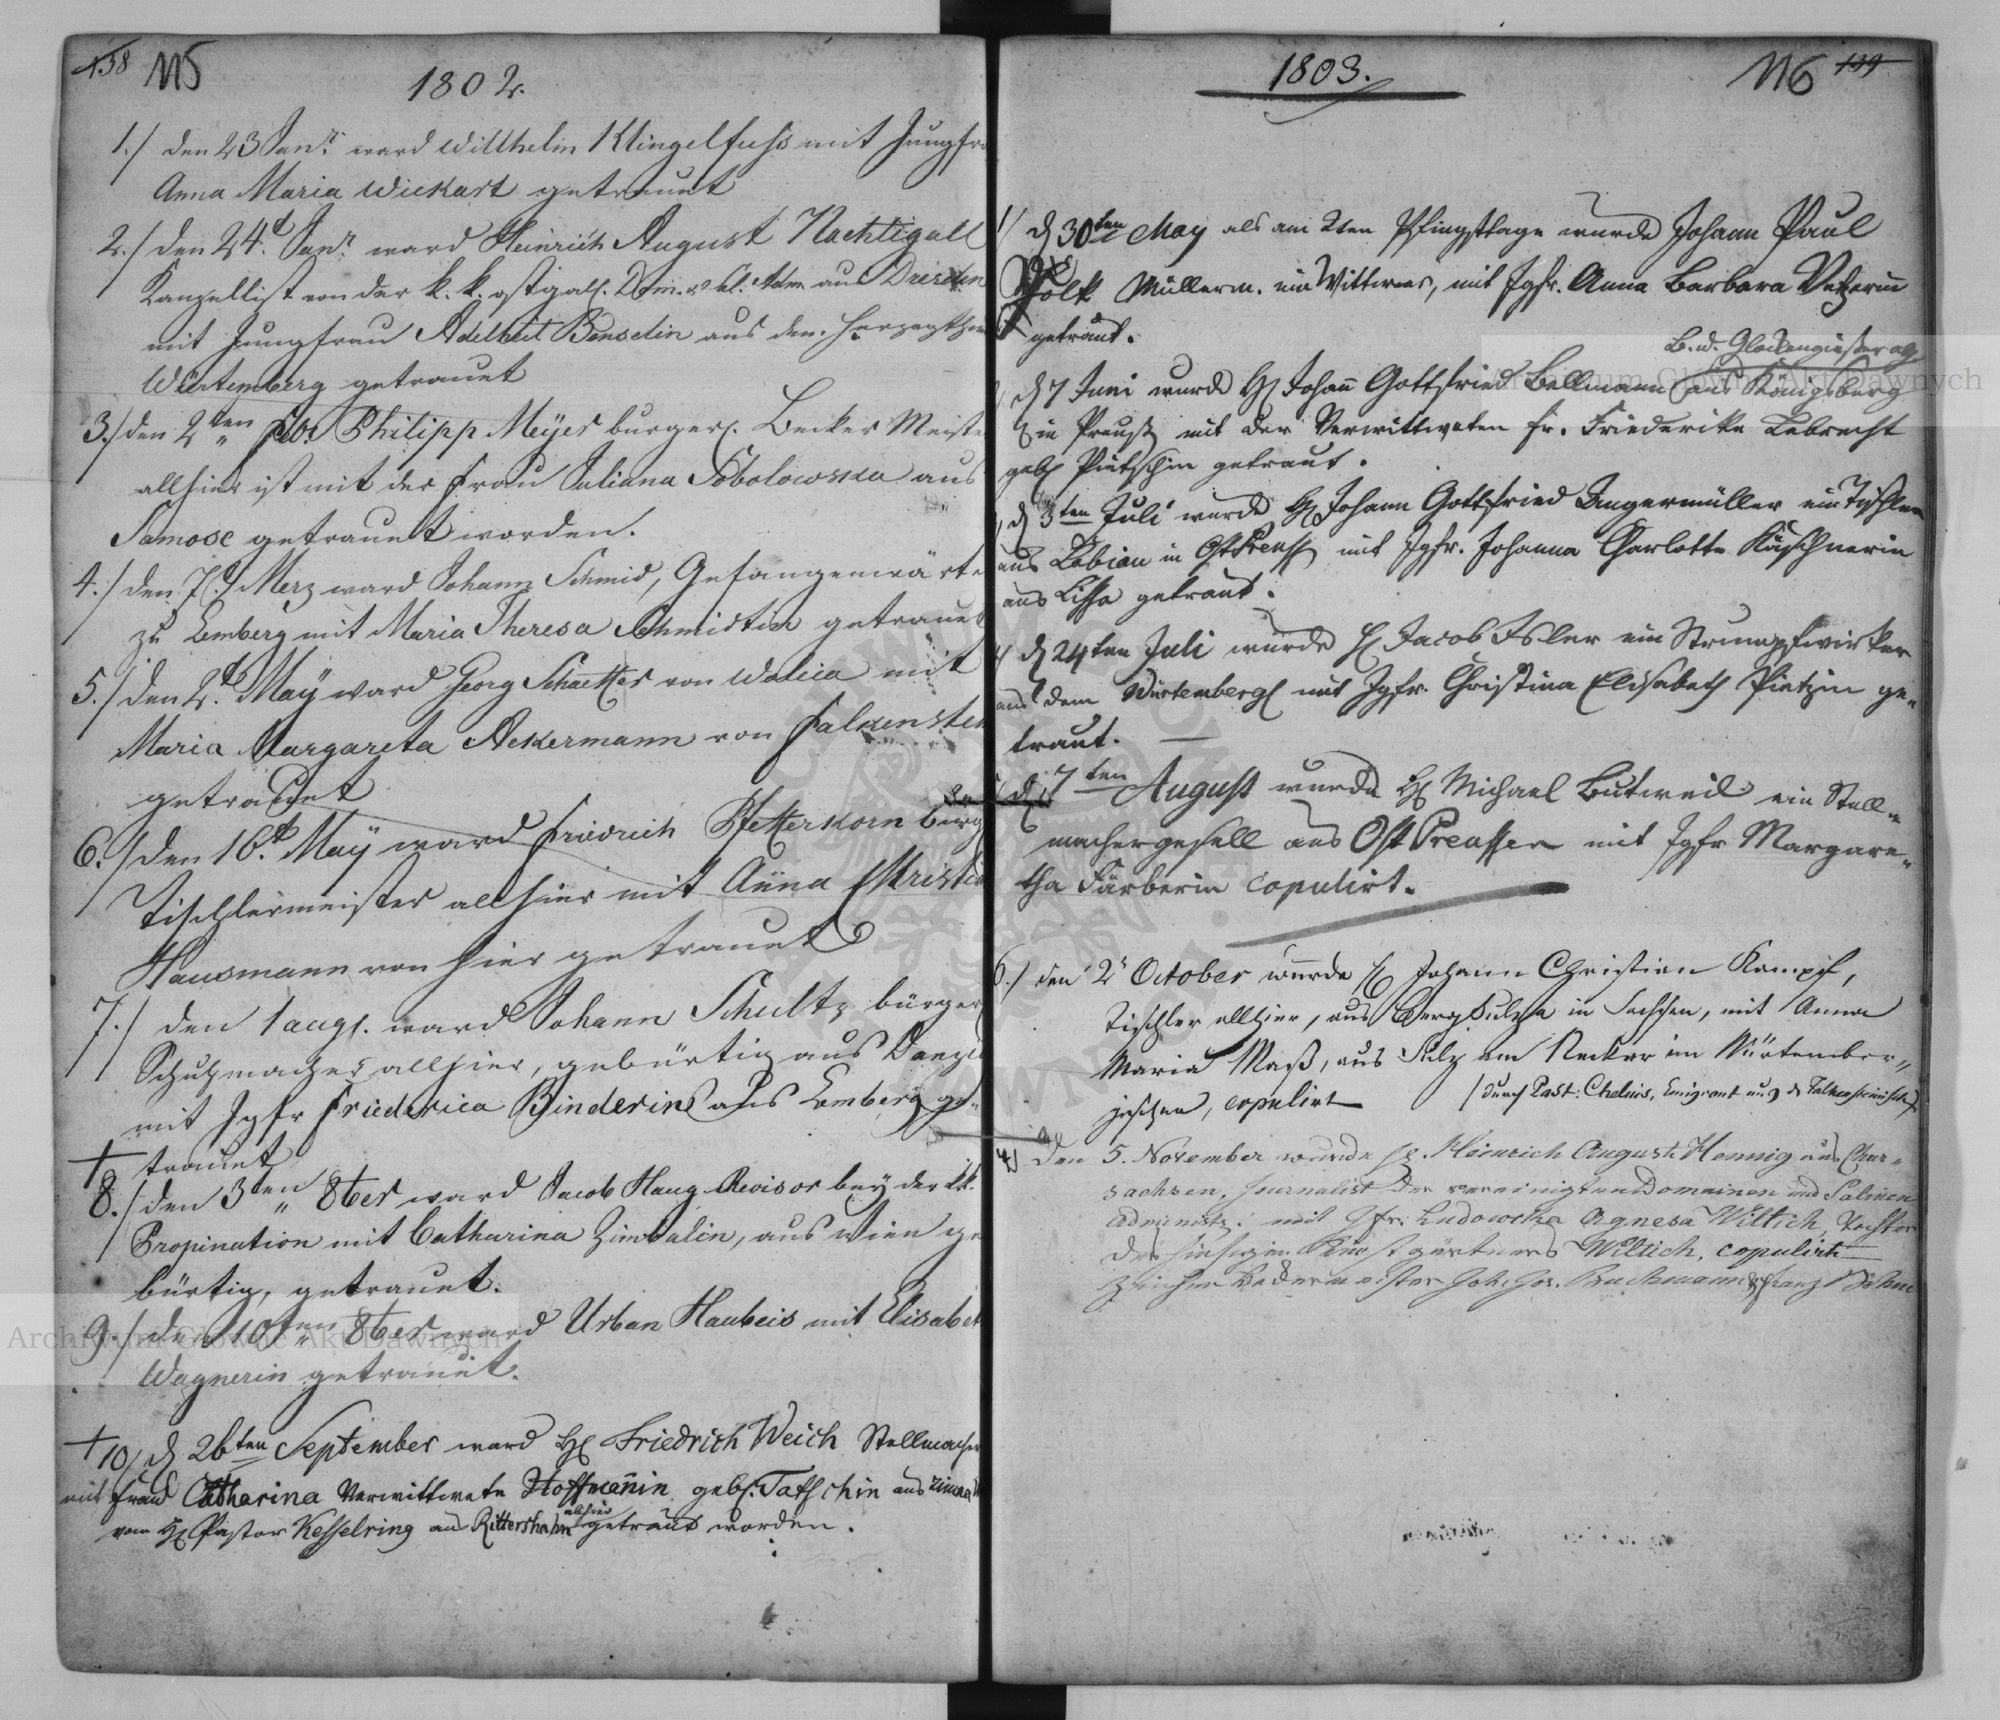 138 115
1802.
1./ den 23 Janr. ward Willhelm Klingelfuss mit Jungfr
Anna Maria Wickart getrauet
2./ den 24.t Janr. ward Heinrich August Nachtigall
Kanzellist von der k. k. ostgall. Dom. Adm. aus Dresden
mit Jungfrau Adelheit aus dem Herzogthum
Würtemberg getrauet
3./ den 2ten Philipp Meyer burgerl. Becker Meister
allhier ist mit der Frau Juliana Sobolowska aus
Samosc getrauet worden.
4./ den 7. Merz ward Johann Schmid, Gefangenwärter
zu Lemberg mit Maria Theresa Schmidtin getrauet
5./ den 2.t May ward Georg Schaeffer von mit
Maria Margareta Ackermann von Falkenstein
getrauet
6./ den 16.t May ward Friedrich Pfefferkorn burg
Tischlermeister allhier mit Anna Christi
Hausmann von hier getrauet
7./ den 1 augs. ward Johann Schultz bürger
Schuhmacher allhier, gebürtig aus Danzi
mit Jgfr Friederica Binderin aus Lemberg ge-
trauet
+ 8./ den 3ten 8ber ward Jacob Haug Revisor bey der k.
Propination mit Catharina Zimbalin, aus Wien ge
bürtig, getrauet.
9./ den 10ten 8ber ward Urban Haubeis mit Elisabet
Wagnerin getrauet.
+ 10/ d 26ten September ward H Friedrich Weich Stellmacher
mit Frau Catharina Verwittwete Hoffmanin geb. Tatschin aus
vom H Pastor Kesselring aus allhier getraut worden.
1803.
116 139
1/ d 30ten May als am 2ten Pfingsttage wurde Johann Paul
Müllerm. ein Wittwer, mit Jgfr. Anna Barbara
getraut.
B. u. Glockengiesser
d 7 Juni wurde H Johann Gottfried Bellmann aus Königsberg
in Preuss mit der Verwittweten Fr. Friederike Lebrecht
geb Pietschin getraut.
d 3ten Juli wurde H Johann Gottfried Angermüller ein Tischler
aus Labiau in OstPreuss mit Jgfr. Johanna Charlotte Käschnerin
aus Lissa getraut.
4 d 24ten Juli wurde H Jacob Isler ein Strumpfwirker
aus dem Würtemberg mit Jgfr. Christina Elisabeth Pietzin ge-
traut.
d 7ten August wurde H Michael Butweil ein Stell-
machergesell aus Ost Preussen mit Jgfr Margare-
tha Färberin copulirt.
6./ den 2t October wurde H Johann Christian Kampf,
Tischler allhier, aus Bergsulza in Sachsen, mit Anna
Maria Maß, aus Sulz am Neckar im Würtember-
gischen, copulirt (durch Past: Chelius,
den 5. November wurde H. Heinrich August Hennig aus Chur-
sachsen, Journalist der vereinigten Domainen und Salinen
Administ. mit Jfr. Ludowika Agnesa Wiltich, Tochter
des hiesigen Kunstgärtners Wiltich, copulirt
Joh. Bachmann & Franz
Archiwum Główne Akt Dawnych
Archiwum Główne Akt Dawnych